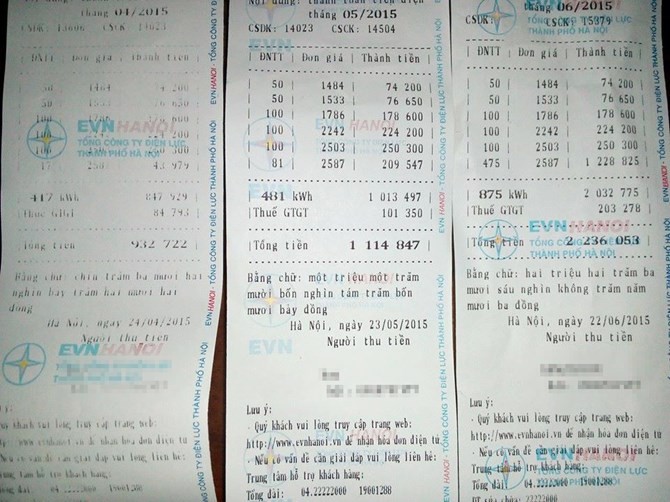 tháng 04/2015
CSDK: 13606 CSCK: 14023
ĐNTT | Đơn giá | Thành tiền
50 1484 74 200
50 1533 76 650
100
100
100
17 2587 43 979
417 kWh 847 929
Thuế GTGT 84 793
Tổng tiền 932 722
Bằng chữ: chín trăm ba mươi hai
nghìn bảy trăm hai mươi hai
đồng
Hà Nội, ngày 24/04/2015
Người thu tiền
EVNHANOI
Lưu ý:
khách vui lòng truy cập trang web:
http://www.evnhanoi.vn để nhận hóa đơn điện tử
Nếu có vấn đề cần giải đáp vui lòng liên hệ:
Trung tâm hỗ trợ khách hàng:
Tổng đài: 04.22222000 19001288
tháng 05/2015
CSDK: 14023 CSCK: 14504
| ĐNTT | Đơn giá | Thành tiền |
| 50 | 1484 | 74 200 |
| 50 | 1533 | 76 650 |
| 100 | 1786 | 178 600 |
| 100 | 2242 | 224 200 |
| 100 | 2503 | 250 300 |
| 81 | 2587 | 209 547 |
| 481 kWh 1 013 497 |
| Thuế GTGT 101 350 |
| Tổng tiền 1 114 847 |
Bằng chữ: một triệu một trăm
mười bốn nghìn tám trăm bốn
mươi bảy đồng
Hà Nội, ngày 23/05/2015
Người thu tiền
EVN
Lưu ý:
- Quý khách vui lòng truy cập trang web:
http://www.evnhanoi.vn để nhận hóa đơn điện tử
- Nếu có vấn đề cần giải đáp vui lòng liên hệ:
Trung tâm hỗ trợ khách hàng:
Tổng đài: 04.22222000 19001288
tháng 06/2015
CSDK: CSCK: 15379
| ĐNTT | Đơn giá | Thành tiền |
| 50 | 1484 | 74 200 |
| 50 | 1533 | 76 650 |
| 100 | 1786 | 178 600 |
| 100 | 2242 | 224 200 |
| 100 | 2503 | 250 300 |
| 475 | 2587 | 1 228 825 |
| 875 kWh 2 032 775 |
| Thuế GTGT 203 278 |
| Tổng tiền 2 236 053 |
Bằng chữ: hai triệu hai trăm ba
mươi sáu nghìn không trăm năm
mươi ba đồng
Hà Nội, ngày 22/06/2015
Người thu tiền
Lưu ý:
- Quý khách vui lòng truy cập trang web:
http://www.evnhanoi.vn để nhận hóa đơn điện tử
- Nếu có vấn đề cần giải đáp vui lòng liên hệ:
Trung tâm hỗ trợ khách hàng:
Tổng đài: 04.22222000 19001288
EVNHANOI
TỔNG CÔNG TY ĐIỆN LỰC
THÀNH PHỐ HÀ NỘI
EVNHANOI - TỔNG CÔNG TY ĐIỆN LỰC THÀNH PHỐ HÀ NỘI